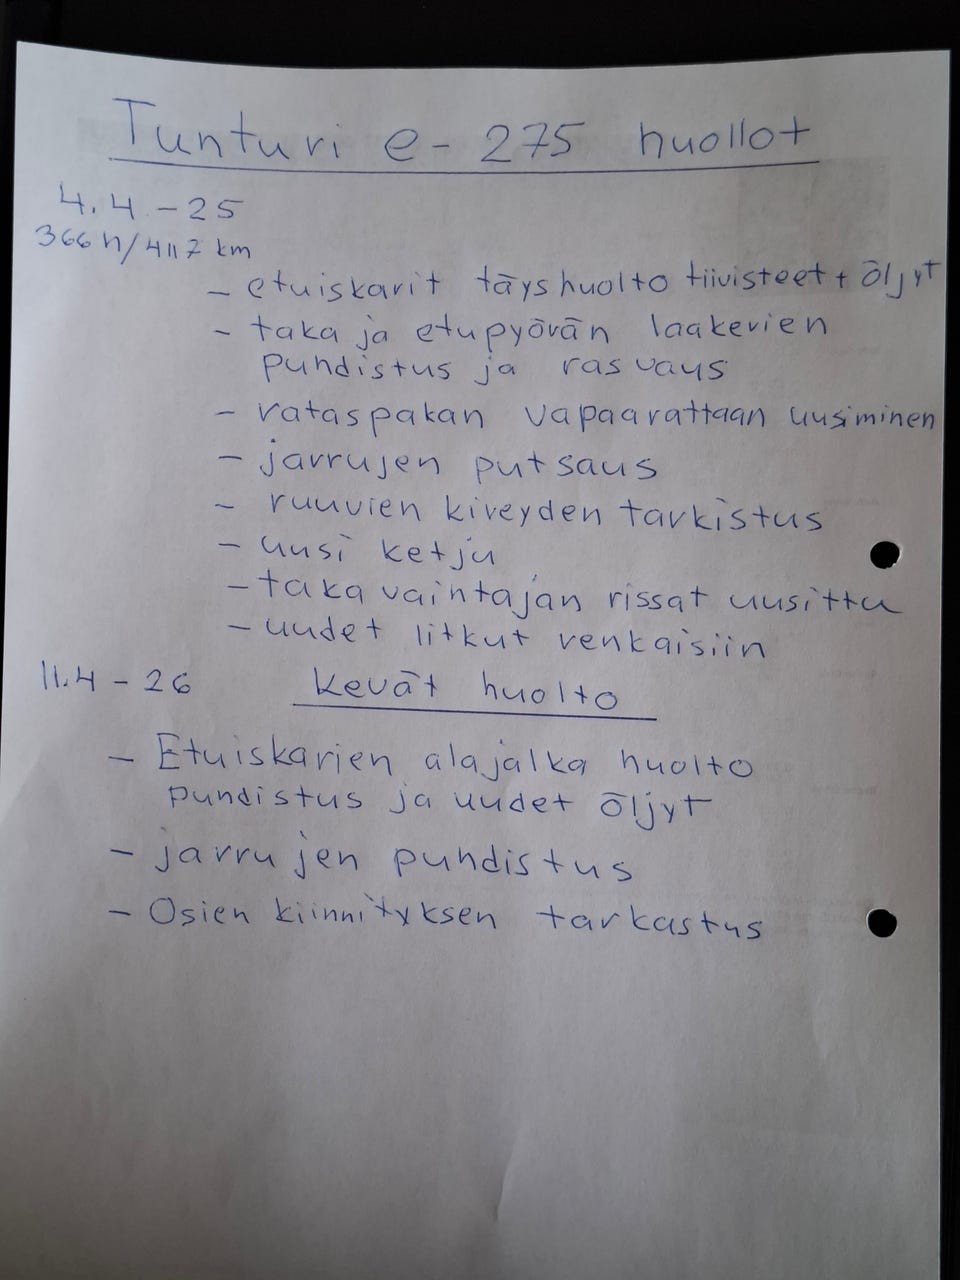 Tunturi e-275 huollot
4.4-25
366h/4117 km
- etuiskarit täyshuolto tiivisteet + öljyt
- taka ja etupyörän laakerien
puhdistus ja rasvaus
- rataspakan vapaarattaan uusiminen
- jarrujen putsaus
- ruuvien kireyden tarkistus
- uusi ketju
- taka vaihtajan rissat uusittu
- uudet litkut renkaisiin
11.4-26 Kevät huolto
- Etuiskarien alajalka huolto
puhdistus ja uudet öljyt
- jarrujen puhdistus
- Osien kiinnityksen tarkastus